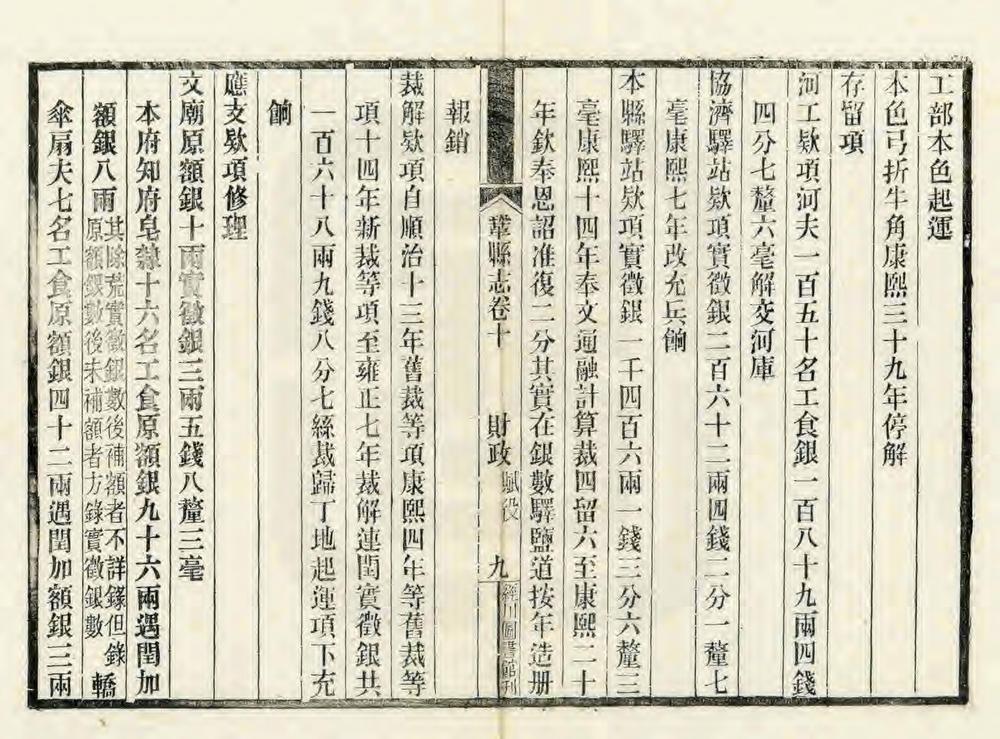 工部本色起運
本色弓折牛角康熙三十九年停解
存留項
河工欵項河夫一百五十名工食銀一百八十九兩四錢
四分七釐六毫解交河庫
協濟驛站欵項實徵銀二百六十二兩四錢二分一釐七
毫康熙七年改充兵餉
本縣驛站欵項實徵銀一千四百六兩一錢三分六釐三
毫康熙十四年奉文通融計算裁四留六至康熙二十
年欽奉恩詔准復二分其實在銀數驛鹽道按年造册
報銷
鞏縣志卷十 財政 賦役 九 經川圖書館刊
裁解欵項自順治十三年舊裁等項康熙四年等舊裁等
項十四年新裁等項至雍正七年裁解連閏實徵銀共
一百六十八兩九錢八分七絲裁歸丁地起運項下充
餉
應支欵項修理
文廟原額銀十兩實徵銀三兩五錢八釐三毫
本府知府皂隸十六名工食原額銀九十六兩遇閏加
額銀八兩 其除荒實徵銀數後補額者不詳錄但錄 原額銀數後未補額者方錄實徵銀數 轎
傘扇夫七名工食原額銀四十二兩遇閏加額銀三兩